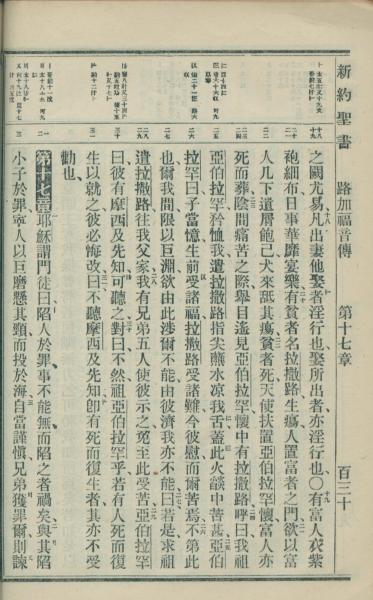 新約聖書 路加福音傳 第十七章 百三十
之闕尤易凡出妻他娶者淫行也娶所出者亦淫行也○有富人衣紫
袍細布日事華靡宴樂有貧者名拉撒路生瘍人置富者之門欲以富
人几下遺屑飽己犬來舐其瘍貧者死天使扶置亞伯拉罕懷富人亦
死而葬陰間痛苦之際舉目遙見亞伯拉罕懷中有拉撒路呼曰我祖
亞伯拉罕矜恤我遣拉撒路指尖蘸水凉我舌蓋此火燄中苦甚亞伯
拉罕曰子當憶生前受諸福拉撒路受諸難今彼慰而爾苦焉不第此
也爾我間限以巨淵欲由此涉爾不能由彼濟我亦不能曰若是求祖
遣拉撒路往我父家我有兄弟五人使彼示之冤至此受苦亞伯拉罕
曰彼有摩西及先知可聽之對曰不然祖亞伯拉罕乎若有人死而復
生以就之彼必悔改曰不聽摩西及先知卽有死而復生者其亦不受
勸也
第十七章耶穌謂門徒曰陷人於罪事不能無而陷之者禍矣與其陷
小子於罪寧人以巨磨懸其頸而投於海自當謹愼兄弟獲罪爾則諫